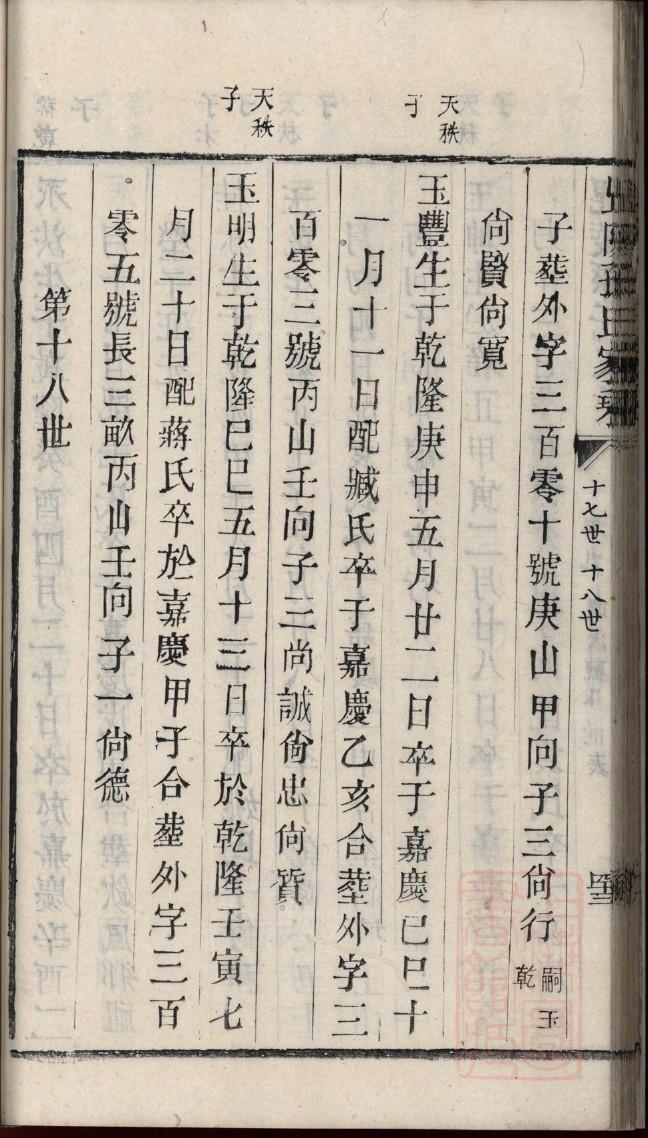 十七世 十八世
子葬外字三百零十號庚山甲向子三尙行嗣玉乾
尙賢尙寬
天秩子
玉豐生于乾隆庚申五月廿二日卒于嘉慶己巳十
一月十一日配臧氏卒于嘉慶乙亥合葬外字三
百零三號丙山壬向子三尚誠尙忠尙質
天秩子
玉明生于乾隆己巳五月十三日卒於乾隆壬寅七
月二十日配蔣氏卒於嘉慶甲子合葬外字三百
零五號長三畝丙山壬向子一尙德
第十八世